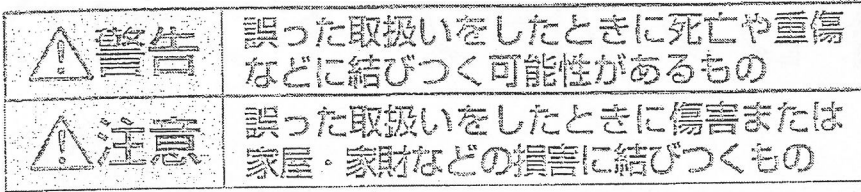 ⚠警告
誤った取扱いをしたときに死亡や重傷
などに結びつく可能性があるもの
⚠注意
誤った取扱いをしたときに傷害または
家屋・家財などの損害に結びつくもの